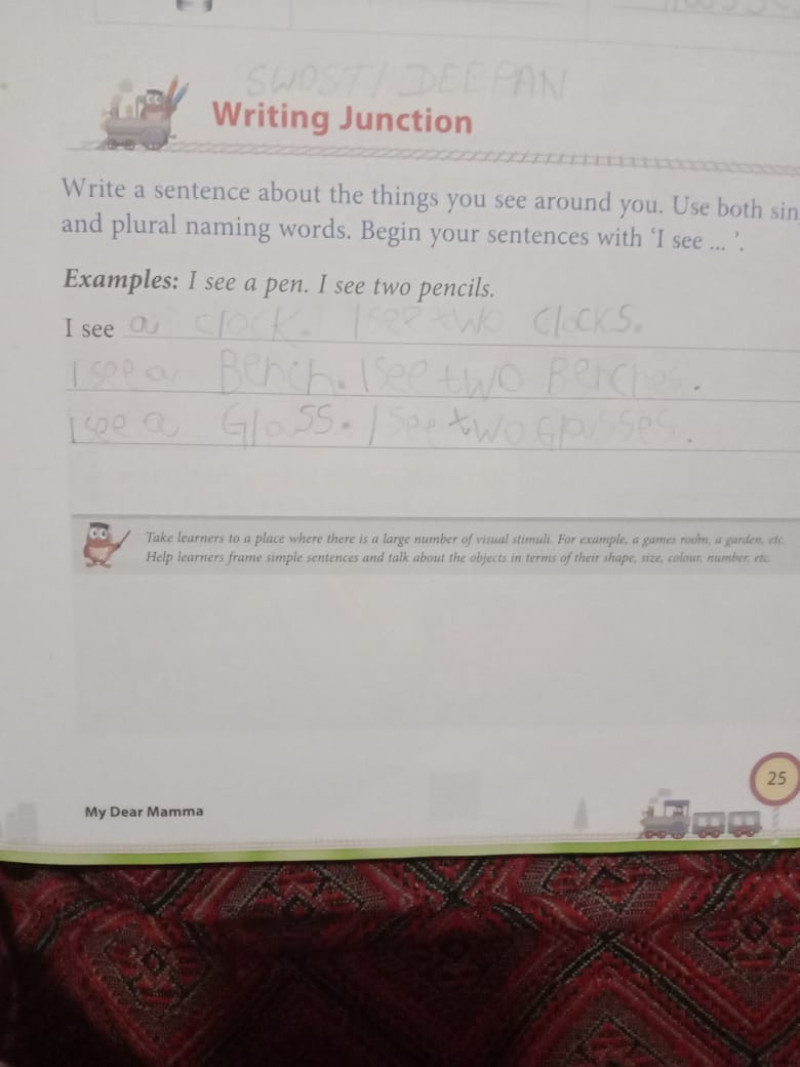 SWOSTI DEEPAN
Writing Junction
Write a sentence about the things you see around you. Use both sin
and plural naming words. Begin your sentences with ‘I see ... ’.
Examples: I see a pen. I see two pencils.
I see a clock. I see two Clocks.
I see a Bench. I see two Benches.
I see a Glass. I see two Glasses.
Take learners to a place where there is a large number of visual stimuli. For example, a games room, a garden, etc.
Help learners frame simple sentences and talk about the objects in terms of their shape, size, colour, number, etc.
25
My Dear Mamma